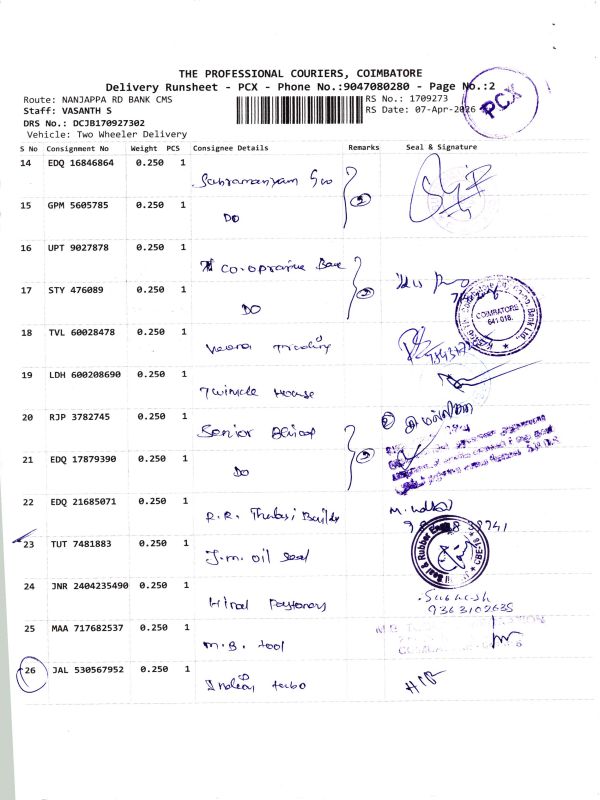 THE PROFESSIONAL COURIERS, COIMBATORE
Delivery Runsheet - PCX - Phone No.:9047080280 - Page No.:2
Route: NANJAPPA RD BANK CMS
RS No.: 1709273
Staff: VASANTH S
RS Date: 07-Apr-2026
DRS No.: DCJB170927302
Vehicle: Two Wheeler Delivery
PCX
S No Consignment No Weight PCS Consignee Details Remarks Seal & Signature
14 EDQ 16846864 0.250 1
15 GPM 5605785 0.250 1
DO
16 UPT 9027878 0.250 1
17 STY 476089 0.250 1
DO
COIMBATORE
641 018.
18 TVL 60028478 0.250 1
Veera Trading
19 LDH 600208690 0.250 1
Twinkle House
20 RJP 3782745 0.250 1
Senior
21 EDQ 17879390 0.250 1
DO
22 EDQ 21685071 0.250 1
R.R. Thulasi Builds
23 TUT 7481883 0.250 1
J.M. oil seal
Oil Seal & Rubber
24 JNR 2404235490 0.250 1
Hiral Fasteners
25 MAA 717682537 0.250 1
M.B. tool
26 JAL 530567952 0.250 1
Indian turbo